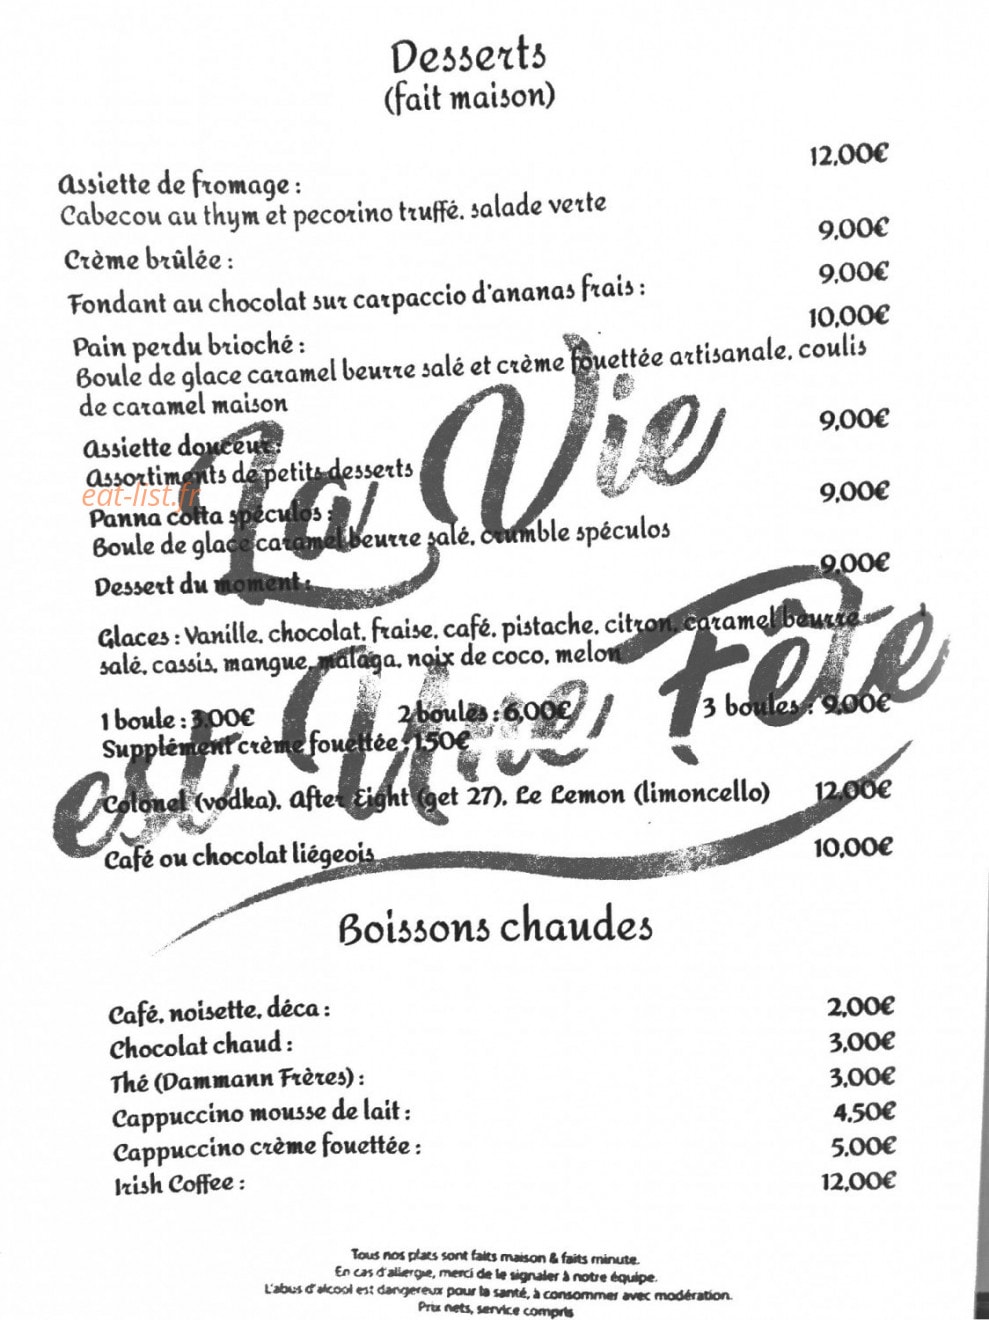 Desserts
(fait maison)
12,00€
Assiette de fromage :
Cabecou au thym et pecorino truffé, salade verte
9,00€
Crème brûlée :
9,00€
Fondant au chocolat sur carpaccio d'ananas frais :
10,00€
Pain perdu brioché :
Boule de glace caramel beurre salé et crème fouettée artisanale, coulis
de caramel maison
9,00€
Assiette douceur :
Assortiments de petits desserts
eat-list.fr
9,00€
Panna cotta spéculos :
Boule de glace caramel beurre salé, crumble spéculos
9,00€
Dessert du moment :
Glaces : Vanille, chocolat, fraise, café, pistache, citron, caramel beurre
salé, cassis, mangue, malaga, noix de coco, melon
1 boule : 3,00€ 2 boules : 6,00€ 3 boules : 9,00€
Supplément crème fouettée : 1,50€
Colonel (vodka), After Eight (get 27), Le Lemon (limoncello) 12,00€
Café ou chocolat liégeois 10,00€
La Vie
est Une Fête
Boissons chaudes
Café, noisette, déca : 2,00€
Chocolat chaud : 3,00€
Thé (Dammann Frères) : 3,00€
Cappuccino mousse de lait : 4,50€
Cappuccino crème fouettée : 5,00€
Irish Coffee : 12,00€
Tous nos plats sont faits maison & faits minute.
En cas d'allergie, merci de le signaler à notre équipe.
L'abus d'alcool est dangereux pour la santé, à consommer avec modération.
Prix nets, service compris